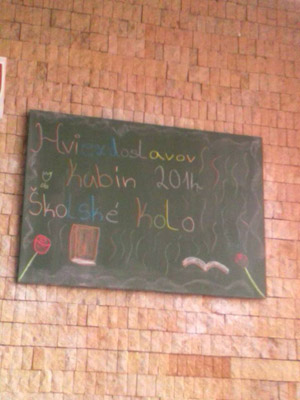 Hviezdoslavov
Kubín 2014
Školské kolo